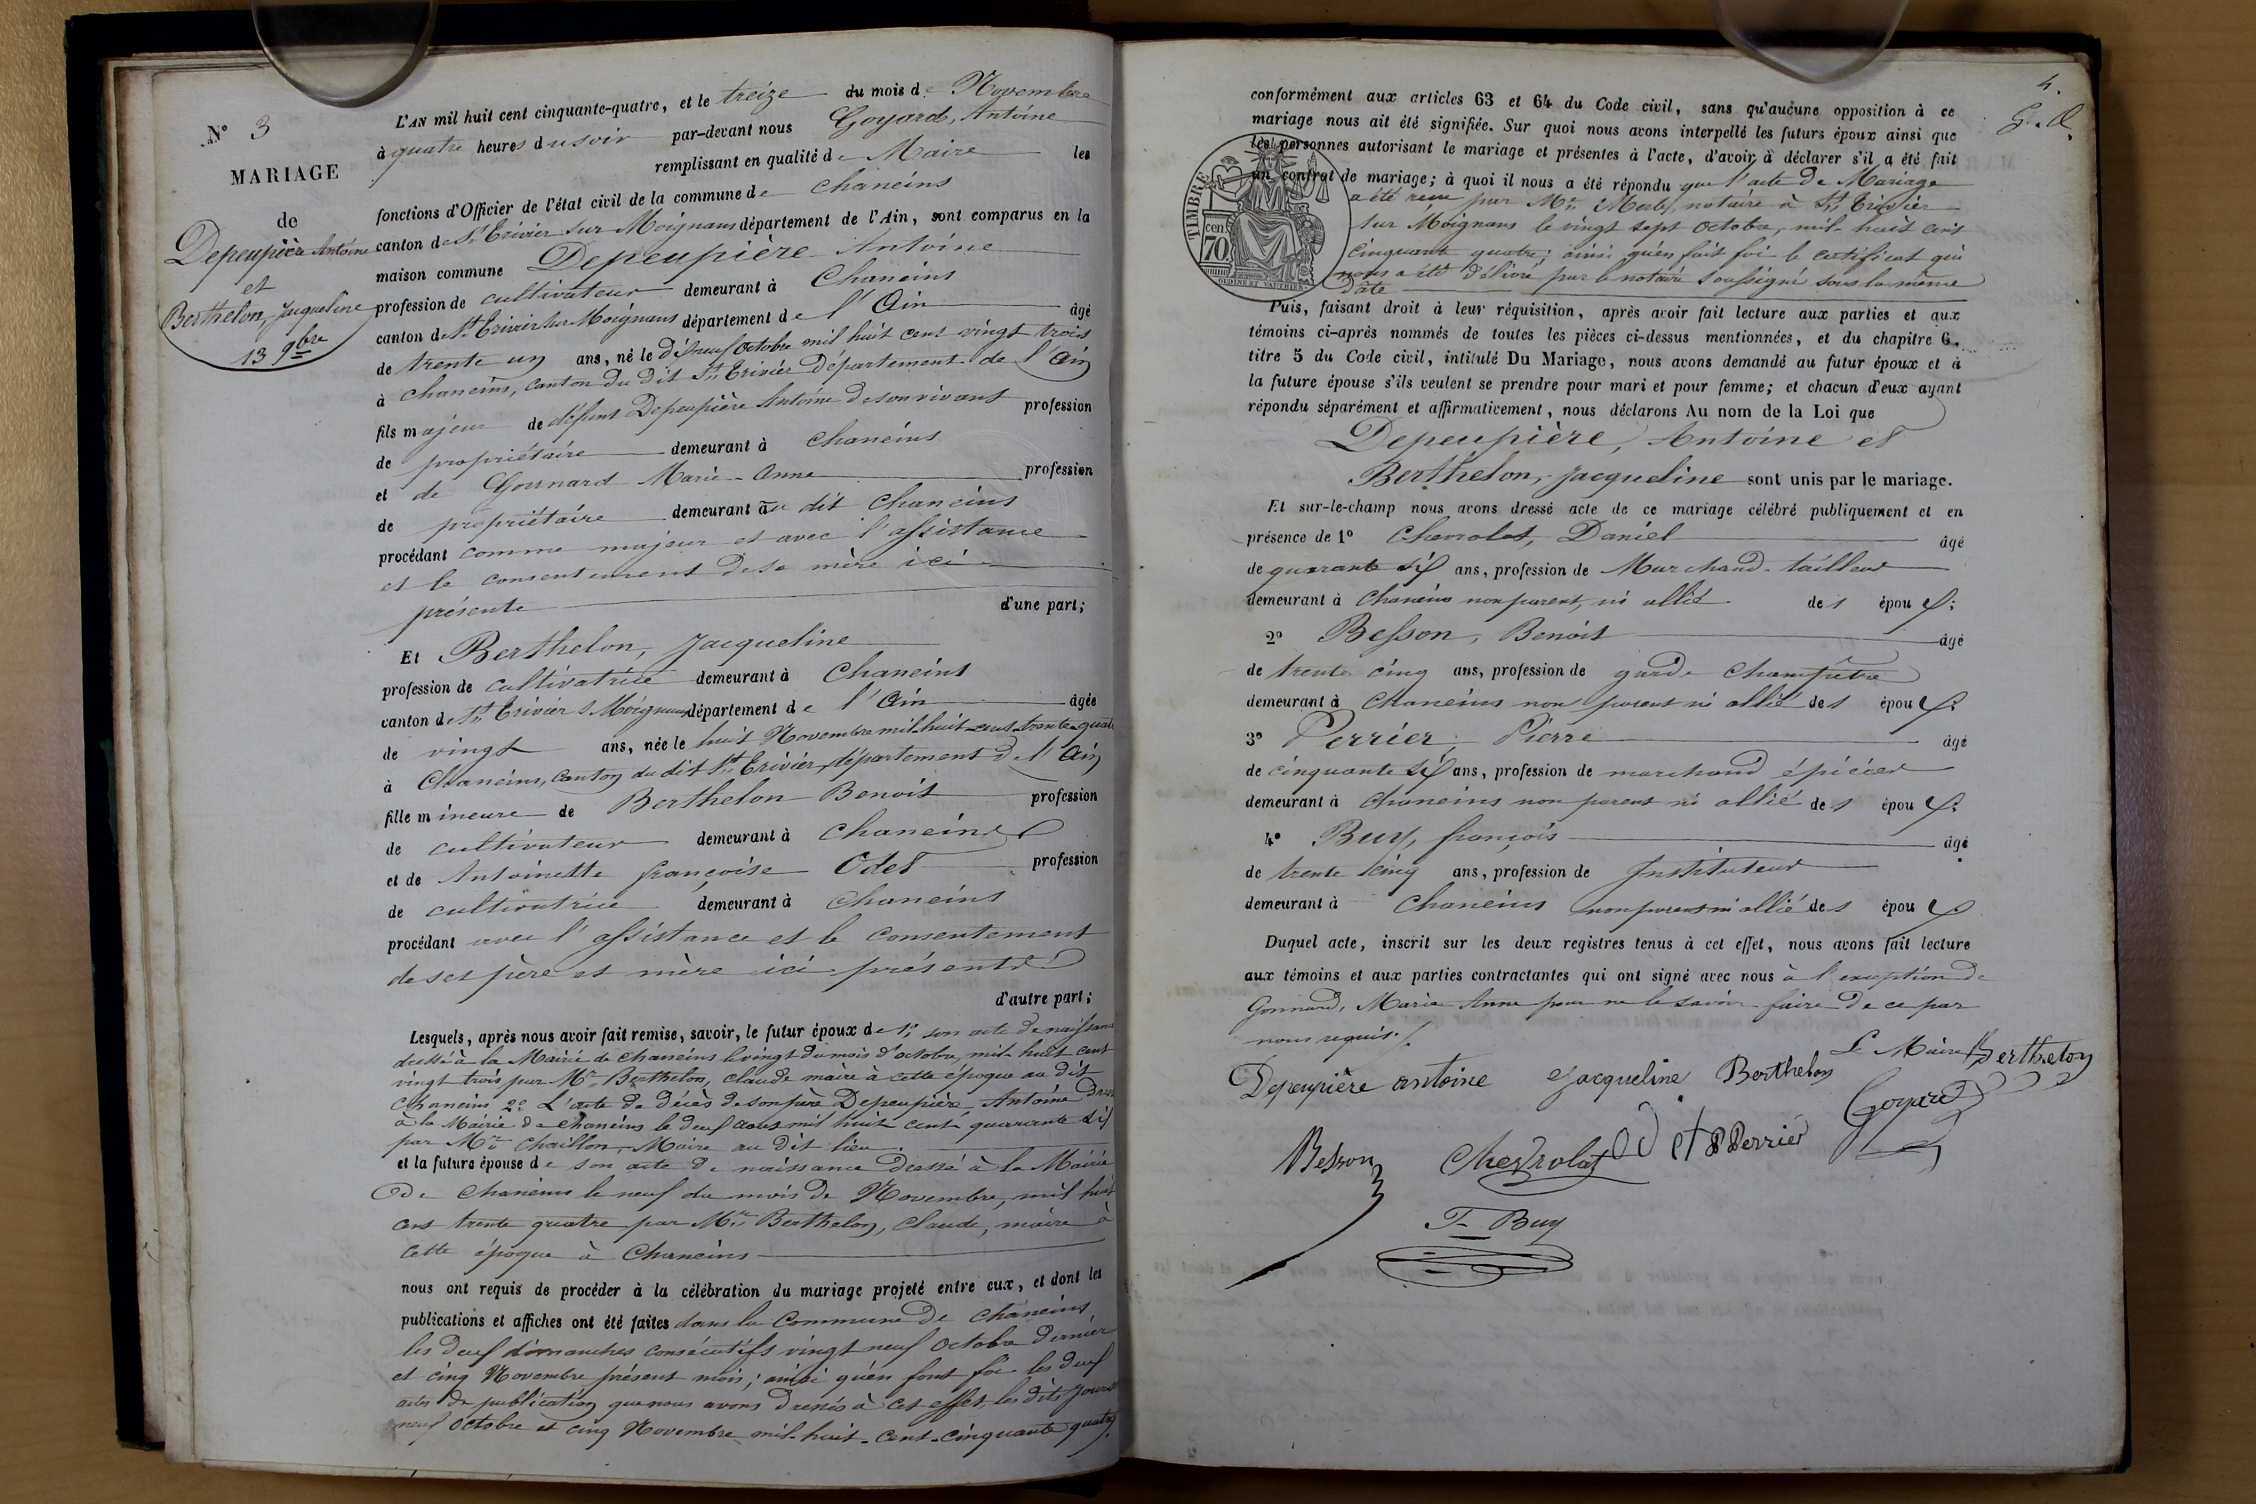 N° 3
MARIAGE
de
Depeupière Antoine
et
Berthelon, Jacqueline
13 9bre
L'AN mil huit cent cinquante-quatre, et le treize du mois de Novembre
à quatre heures du soir par-devant nous Goyard, Antoine
remplissant en qualité de Maire les
fonctions d'Officier de l'état civil de la commune de Chaneins
canton de St Trivier sur Moignans département de l'Ain, sont comparus en la
maison commune Depeupière Antoine
profession de cultivateur demeurant à Chaneins
canton de St Trivier sur Moignans département de l'Ain âgé
de trente un ans, né le dixneuf Octobre mil huit cent vingt trois
à Chaneins, canton du dit St Trivier Département de l'Ain
fils majeur de défunt Depeupière Antoine de son vivant profession
de propriétaire demeurant à Chaneins
et de Gonnard Marie-Anne profession
de propriétaire demeurant au dit Chaneins
procédant comme majeur et avec l'assistance
et le consentement de sa mère ici
présente d'une part;
Et Berthelon, Jacqueline
profession de cultivatrice demeurant à Chaneins
canton de St Trivier s Moignans département de l'Ain âgée
de vingt ans, née le huit Novembre mil-huit-cent-trente-quatre
à Chaneins, canton du dit St Trivier, département de l'Ain
fille mineure de Berthelon Benoit profession
de cultivateur demeurant à Chaneins
et de Antoinette françoise Odet profession
de cultivatrice demeurant à Chaneins
procédant avec l'assistance et le consentement
de ses père et mère ici présents
d'autre part;
Lesquels, après nous avoir fait remise, savoir, le futur époux de 1° son acte de naissance
dressé à la Mairie de Chaneins le vingt du mois d'octobre, mil huit cent
vingt trois par Mr Berthelon, claude maire à cette époque au dit
Chaneins 2° L'acte de décès de son père Depeupière, Antoine Dressé
à la Mairie de Chaneins le deux aout mil huit cent quarante six
par Mr Chaillon, Maire au dit lieu
et la future épouse de son acte de naissance dressé à la Mairie
de Chaneins le neuf du mois de Novembre, mil huit
cent trente quatre par Mr Berthelon, claude, maire à
cette époque à Chaneins
nous ont requis de procéder à la célébration du mariage projeté entre eux, et dont les
publications et affiches ont été faites dans la Commune de Chaneins
les deux dimanches consécutifs vingt neuf Octobre dernier
et cinq Novembre présent mois; ainsi qu'en font foi les deux
actes de publication que nous avons dressés à cet effet les dits jours
neuf Octobre et cinq Novembre mil-huit-cent-cinquante quatre.
4.
conformément aux articles 63 et 64 du Code civil, sans qu'aucune opposition à ce
mariage nous ait été signifiée. Sur quoi nous avons interpellé les futurs époux ainsi que
les personnes autorisant le mariage et présentes à l'acte, d'avoir à déclarer s'il a été fait
un contrat de mariage; à quoi il nous a été répondu que l'acte de Mariage
a été reçu par Mr notaire à St Trivier
sur Moignans le vingt sept Octobre, mil-huit cent
cinquante quatre; ainsi qu'en fait foi le certificat qui
nous a été délivré par le notaire soussigné sous la même
date
TIMBRE
cen.
70
Puis, faisant droit à leur réquisition, après avoir fait lecture aux parties et aux
témoins ci-après nommés de toutes les pièces ci-dessus mentionnées, et du chapitre 6,
titre 5 du Code civil, intitulé Du Mariage, nous avons demandé au futur époux et à
la future épouse s'ils veulent se prendre pour mari et pour femme; et chacun d'eux ayant
répondu séparément et affirmativement, nous déclarons Au nom de la Loi que
Depeupière, Antoine et
Berthelon, Jacqueline sont unis par le mariage.
Et sur-le-champ nous avons dressé acte de ce mariage célébré publiquement et en
présence de 1° Chevrolat, Daniel âgé
de quarante six ans, profession de Marchand-tailleur
demeurant à Chaneins non parent, ni allié des époux;
2° Besson, Benoit âgé
de trente cinq ans, profession de garde champêtre
demeurant à Chaneins non parent ni allié des époux;
3° Perrier Pierre âgé
de cinquante six ans, profession de marchand épicier
demeurant à Chaneins non parent ni allié des époux;
4° Buy, françois âgé
de trente cinq ans, profession de Instituteur
demeurant à Chaneins non parent ni allié des époux
Duquel acte, inscrit sur les deux registres tenus à cet effet, nous avons fait lecture
aux témoins et aux parties contractantes qui ont signé avec nous à l'exception de
Gonnard, Marie Anne pour ne le savoir faire de ce par
nous requis.
Le Maire Berthelon
Depeupière antoine Jacqueline Berthelon
Goyard
Besson Chevrolat Odet P Perrier
F Buy